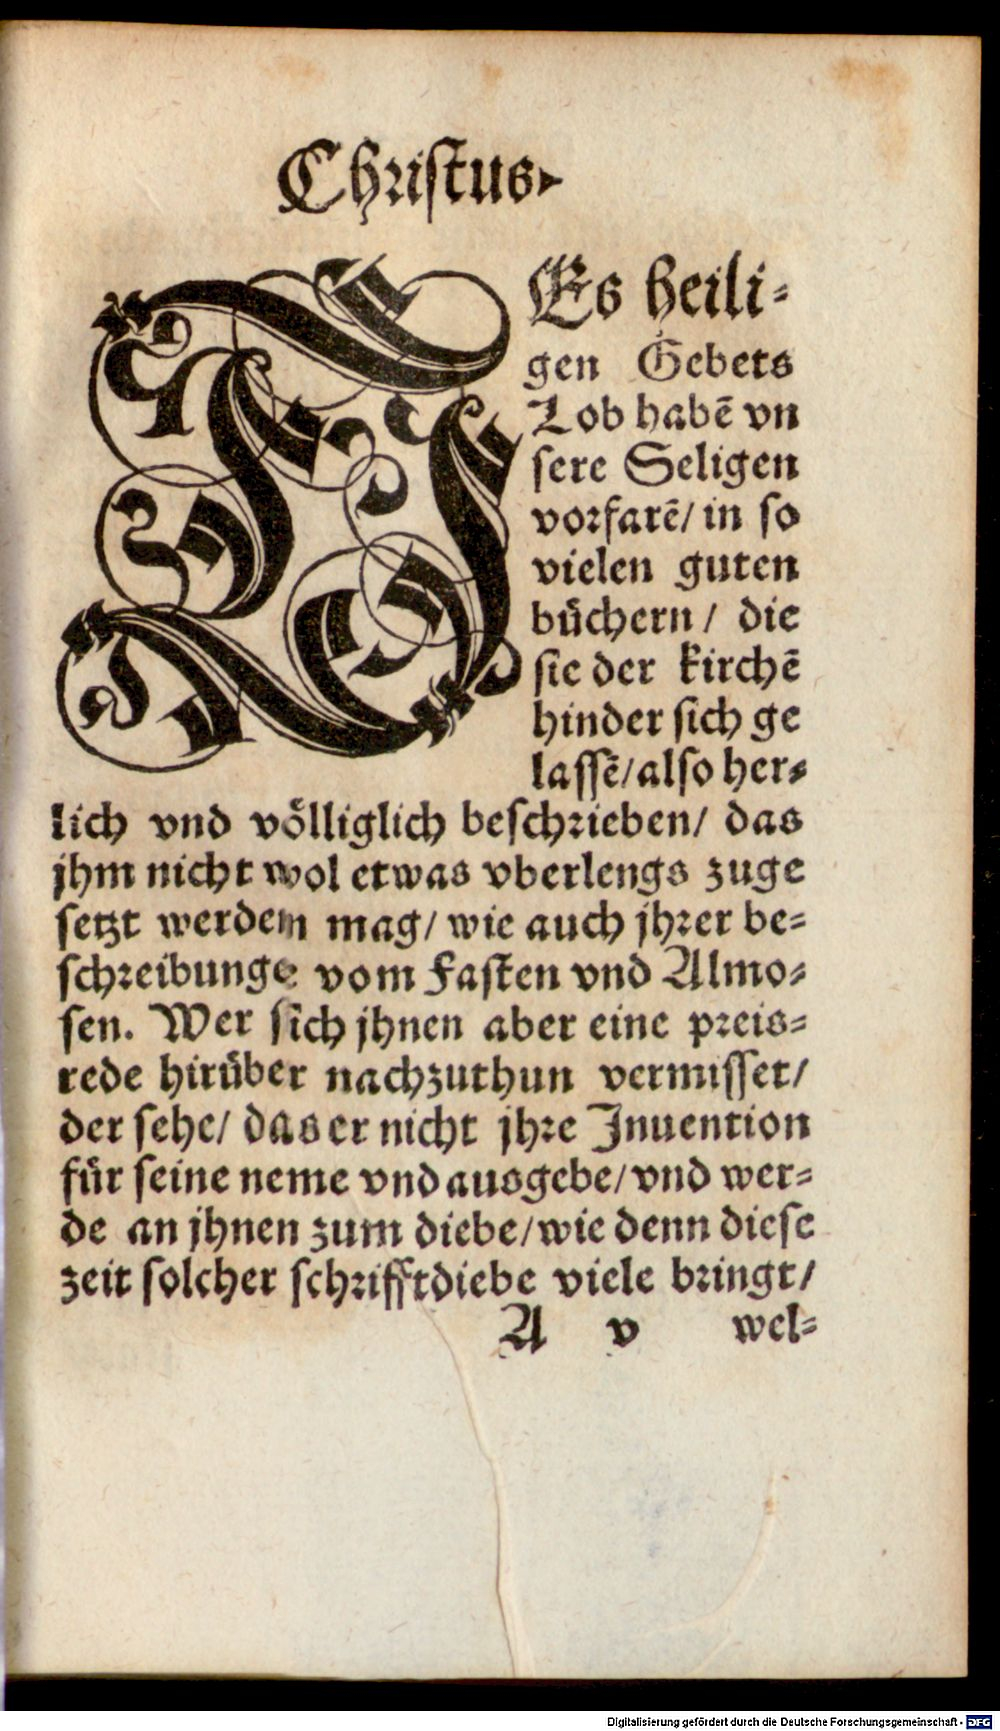 Christus.
DEs heili-
gen Gebets
Lob habē vn
sere Seligen
vorfarē/ in so
vielen guten
bůchern/ die
sie der kirchē
hinder sich ge
lassē/ also her-
lich vnd vȯlliglich beschrieben/ das
jhm nicht wol etwas vberlengs zuge
setzt werden mag/ wie auch jhrer be-
schreibunge vom Fasten vnd Almo-
sen. Wer sich jhnen aber eine preis-
rede hirůber nachzuthun vermisset/
der sehe/ das er nicht jhre Inuention
fůr seine neme vnd ausgebe/ vnd wer-
de an jhnen zum diebe/ wie denn diese
zeit solcher schrifftdiebe viele bringt/
A v wel-
Digitalisierung gefördert durch die Deutsche Forschungsgemeinschaft - DFG